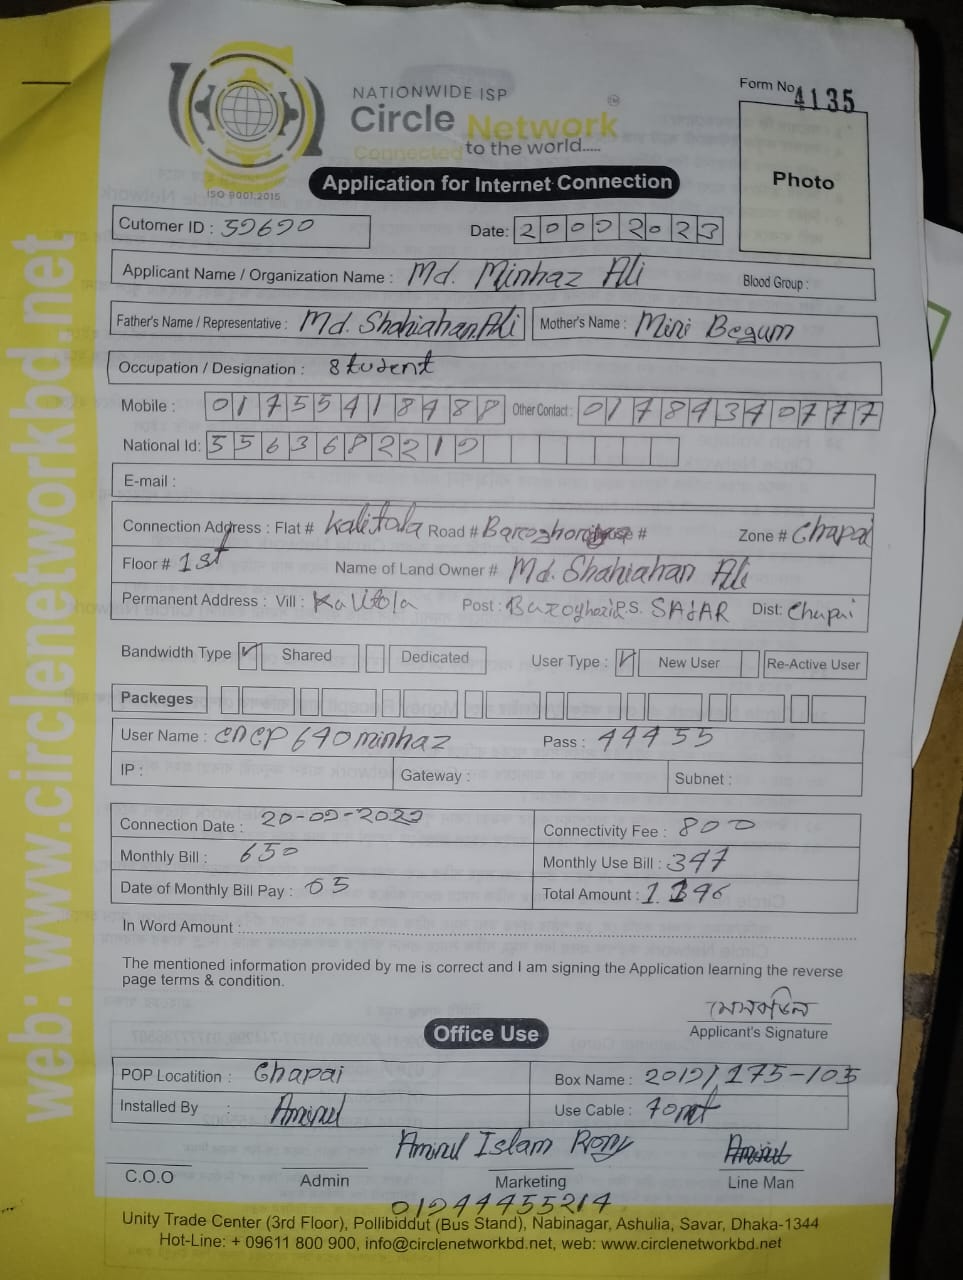 NATIONWIDE ISP
Circle Network
Connected to the world.....
ISO 9001:2015
Form No 4135
Photo
Application for Internet Connection
Cutomer ID : 59690
Date: 20092023
Applicant Name / Organization Name : Md. Minhaz Ali Blood Group :
Father's Name / Representative : Md. Shahiahan Ali Mother's Name : Mini Begum
Occupation / Designation : Student
Mobile : 01755418988 Other Contact : 01789340777
National Id: 5563682219
E-mail :
Connection Address : Flat # Kalitola Road # # Zone # Chapai
Floor # 1st Name of Land Owner # Md. Shahiahan Ali
Permanent Address : Vill : Kalitola Post : P.S. SAdAR Dist: Chapai
Bandwidth Type Shared Dedicated User Type : New User Re-Active User
Packeges
User Name : Pass : 44455
IP : Gateway : Subnet :
Connection Date : 20-09-2023 Connectivity Fee : 800
Monthly Bill : 650 Monthly Use Bill : 347
Date of Monthly Bill Pay : 05 Total Amount :
In Word Amount :
The mentioned information provided by me is correct and I am signing the Application learning the reverse
page terms & condition.
Applicant's Signature
Office Use
POP Locatition : Chapai Box Name :
Installed By : Aminul Use Cable : 70 mt
Aminul Islam Rony Aminul
C.O.O Admin Marketing Line Man
01944455214
Unity Trade Center (3rd Floor), Pollibiddut (Bus Stand), Nabinagar, Ashulia, Savar, Dhaka-1344
Hot-Line: + 09611 800 900, info@circlenetworkbd.net, web: www.circlenetworkbd.net
web: www.circlenetworkbd.net